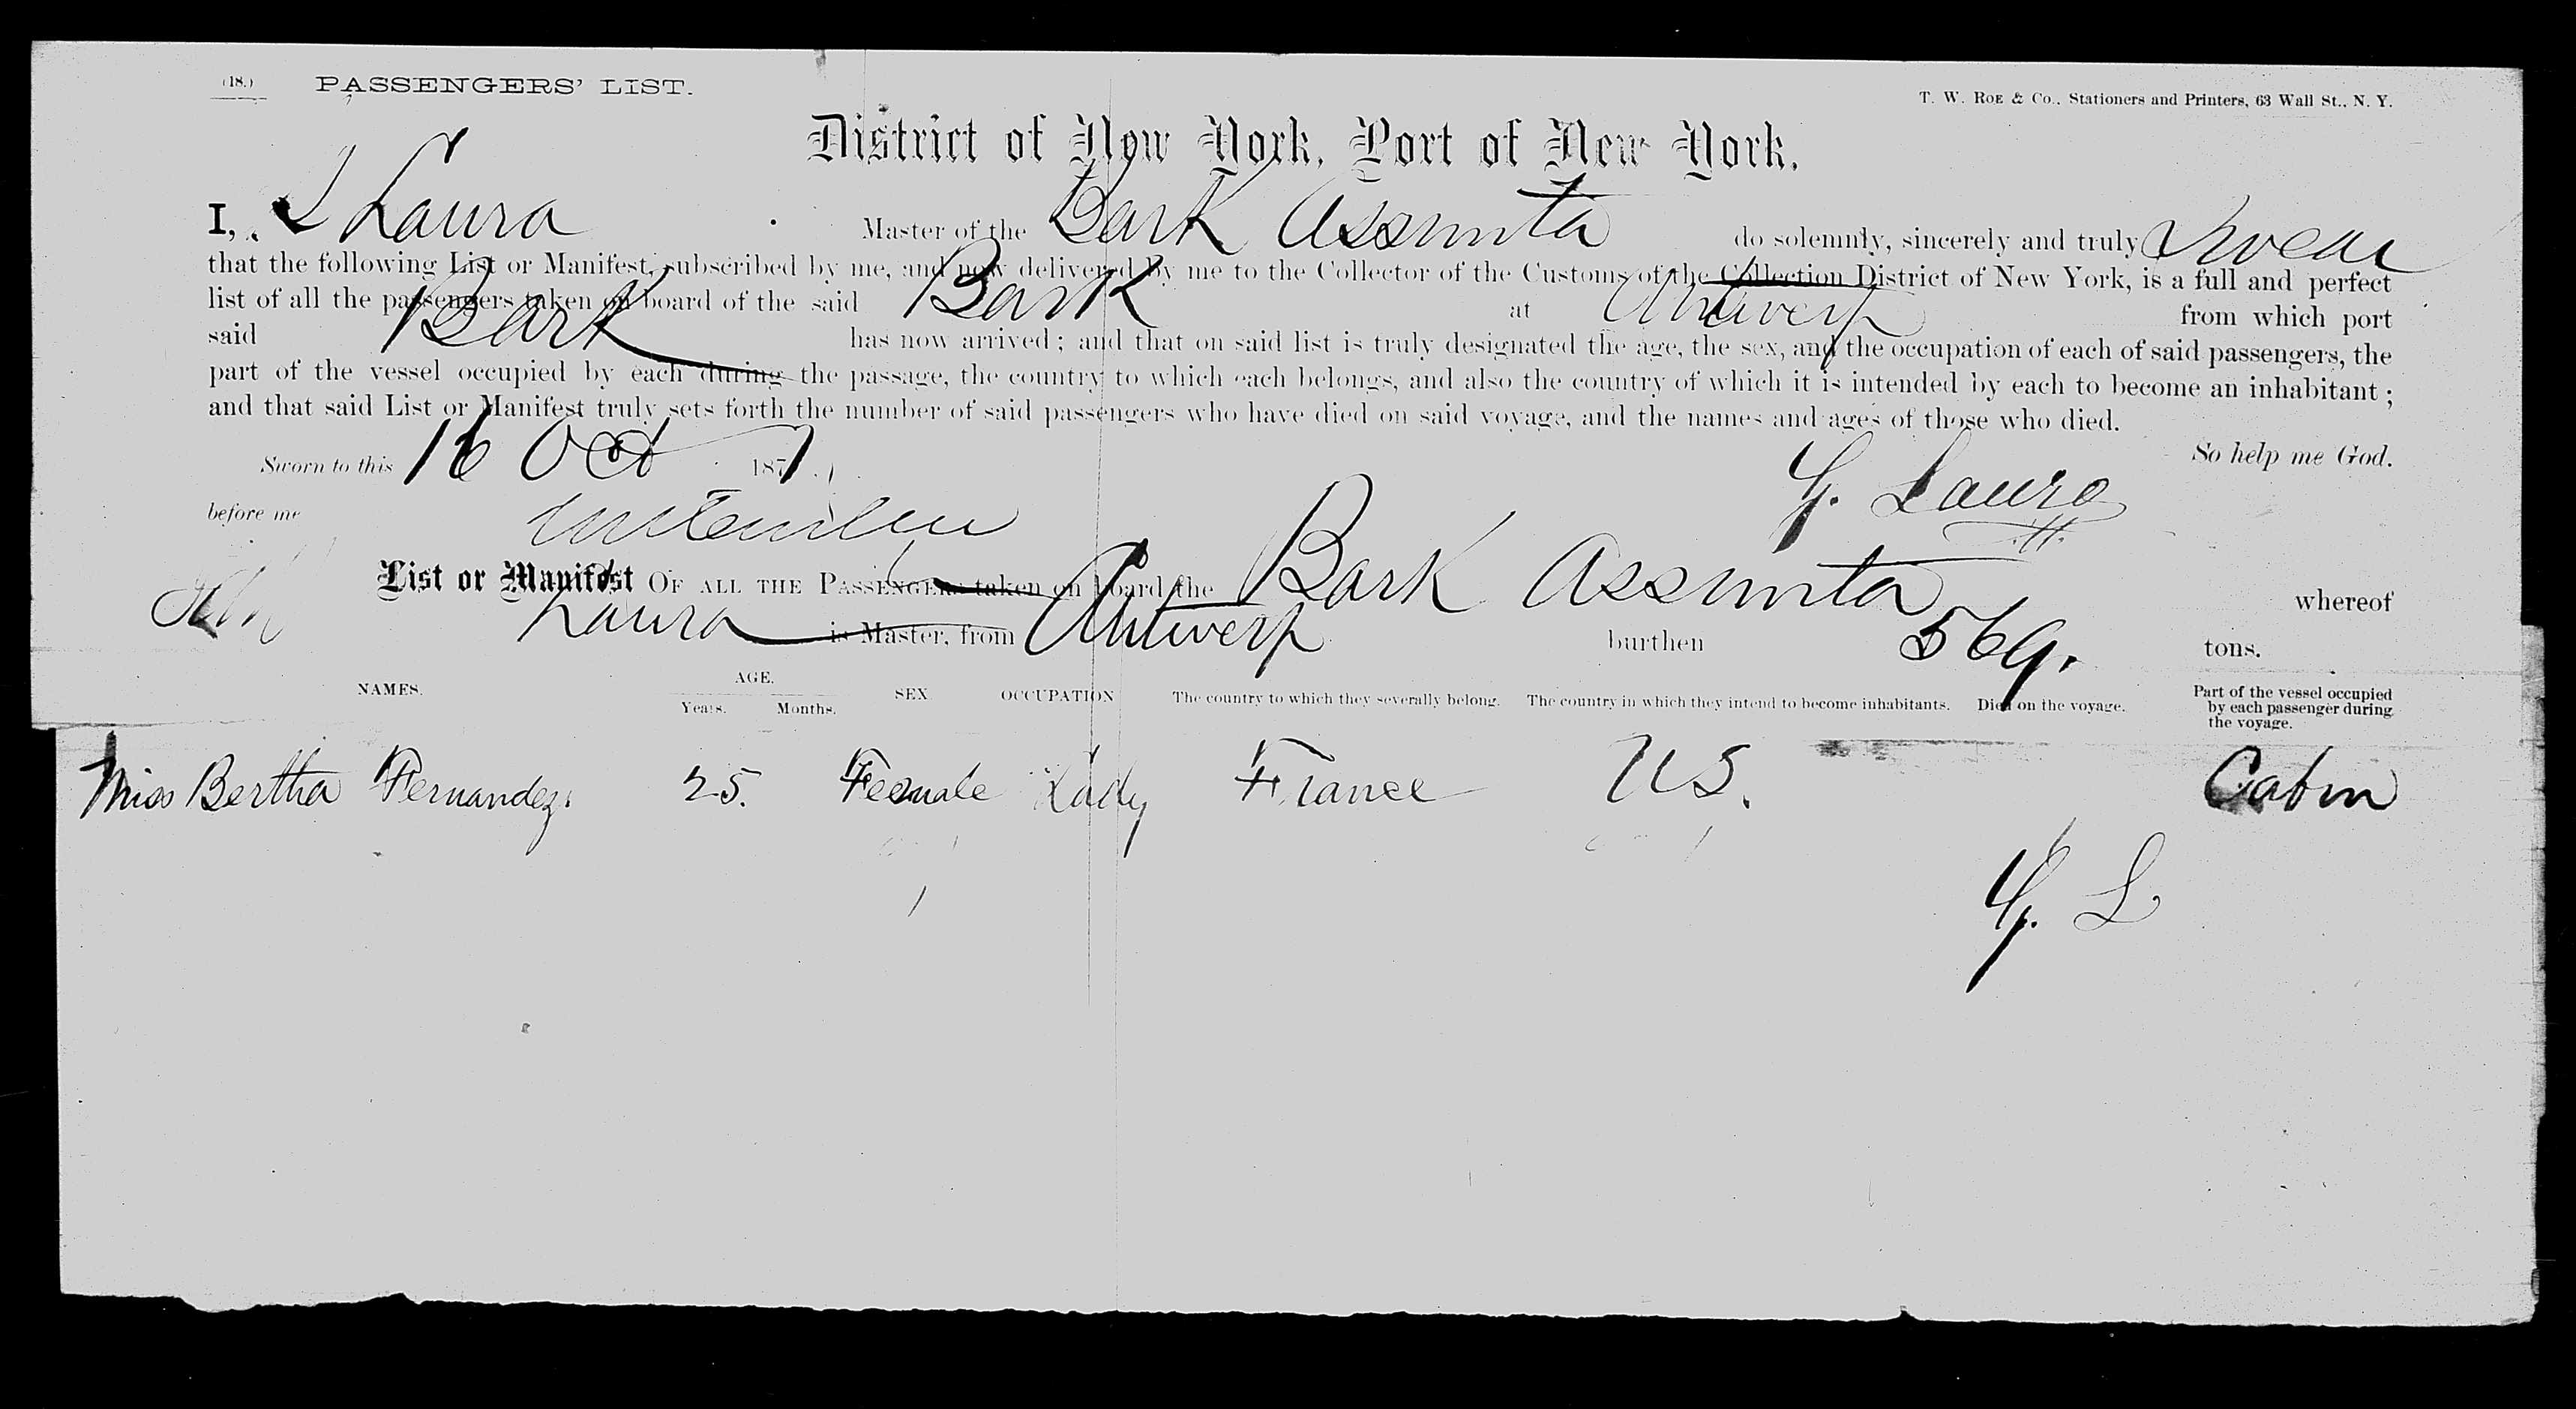 (18.) PASSENGERS' LIST.
T. W. ROE & Co., Stationers and Printers, 63 Wall St., N. Y.
District of New York, Port of New York.
I, Laura Master of the Bark Assunta do solemnly, sincerely and truly Swear
that the following List or Manifest, subscribed by me, and now delivered by me to the Collector of the Customs of the Collection District of New York, is a full and perfect
list of all the passengers taken on board of the said Bark at Antwerp from which port
said Bark has now arrived; and that on said list is truly designated the age, the sex, and the occupation of each of said passengers, the
part of the vessel occupied by each during the passage, the country to which each belongs, and also the country of which it is intended by each to become an inhabitant;
and that said List or Manifest truly sets forth the number of said passengers who have died on said voyage, and the names and ages of those who died.
So help me God.
Sworn to this 16 Oct 1877
G. Lauro
before me
List or Manifest OF ALL THE PASSENGERS taken on board the Bark Assunta whereof
Laura is Master, from Antwerp burthen 569. tons.
NAMES. AGE. Years. Months. SEX OCCUPATION The country to which they severally belong. The country in which they intend to become inhabitants. Died on the voyage. Part of the vessel occupied by each passenger during the voyage.
Miss Bertha Fernandez. 25. Female Lady France US. Cabin
G. L